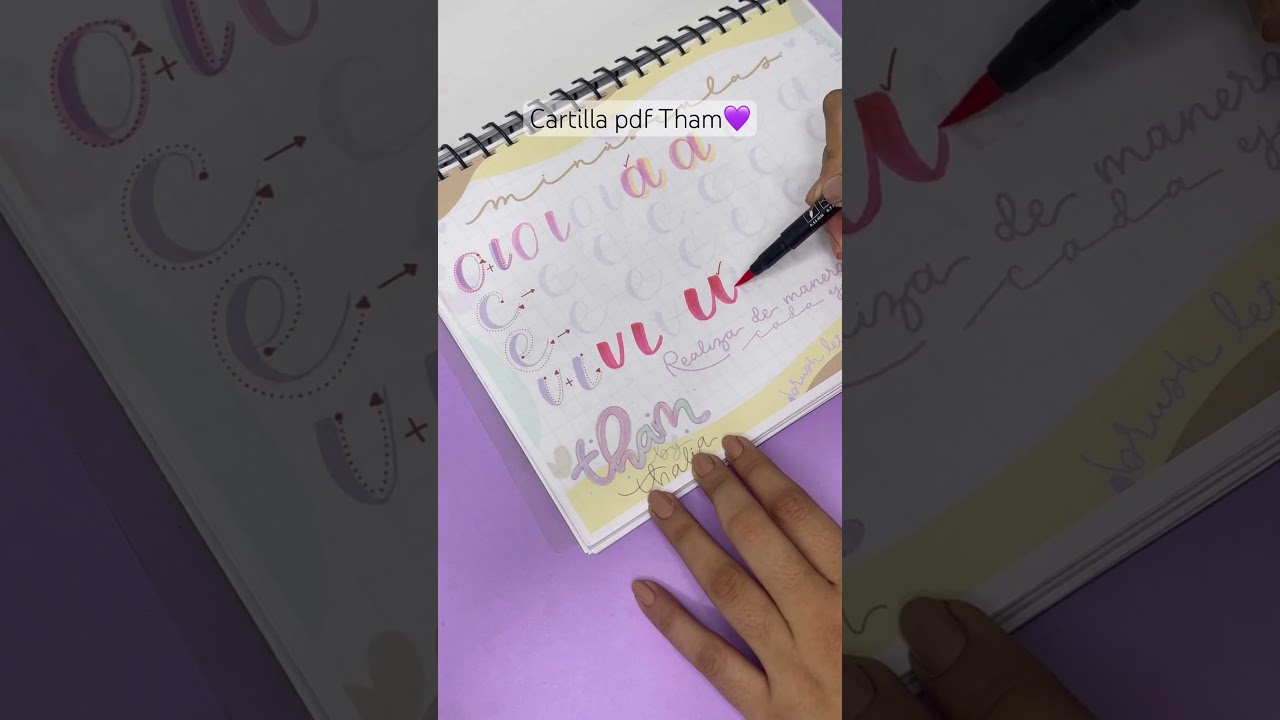 Cartilla pdf Tham💜
minúsculas
o + ı o ı o ı o ı a a a
c c c c c
e e e e e
v + ı v ı v ı u
Realiza de manera
cada
brush let
tham
by
thalia